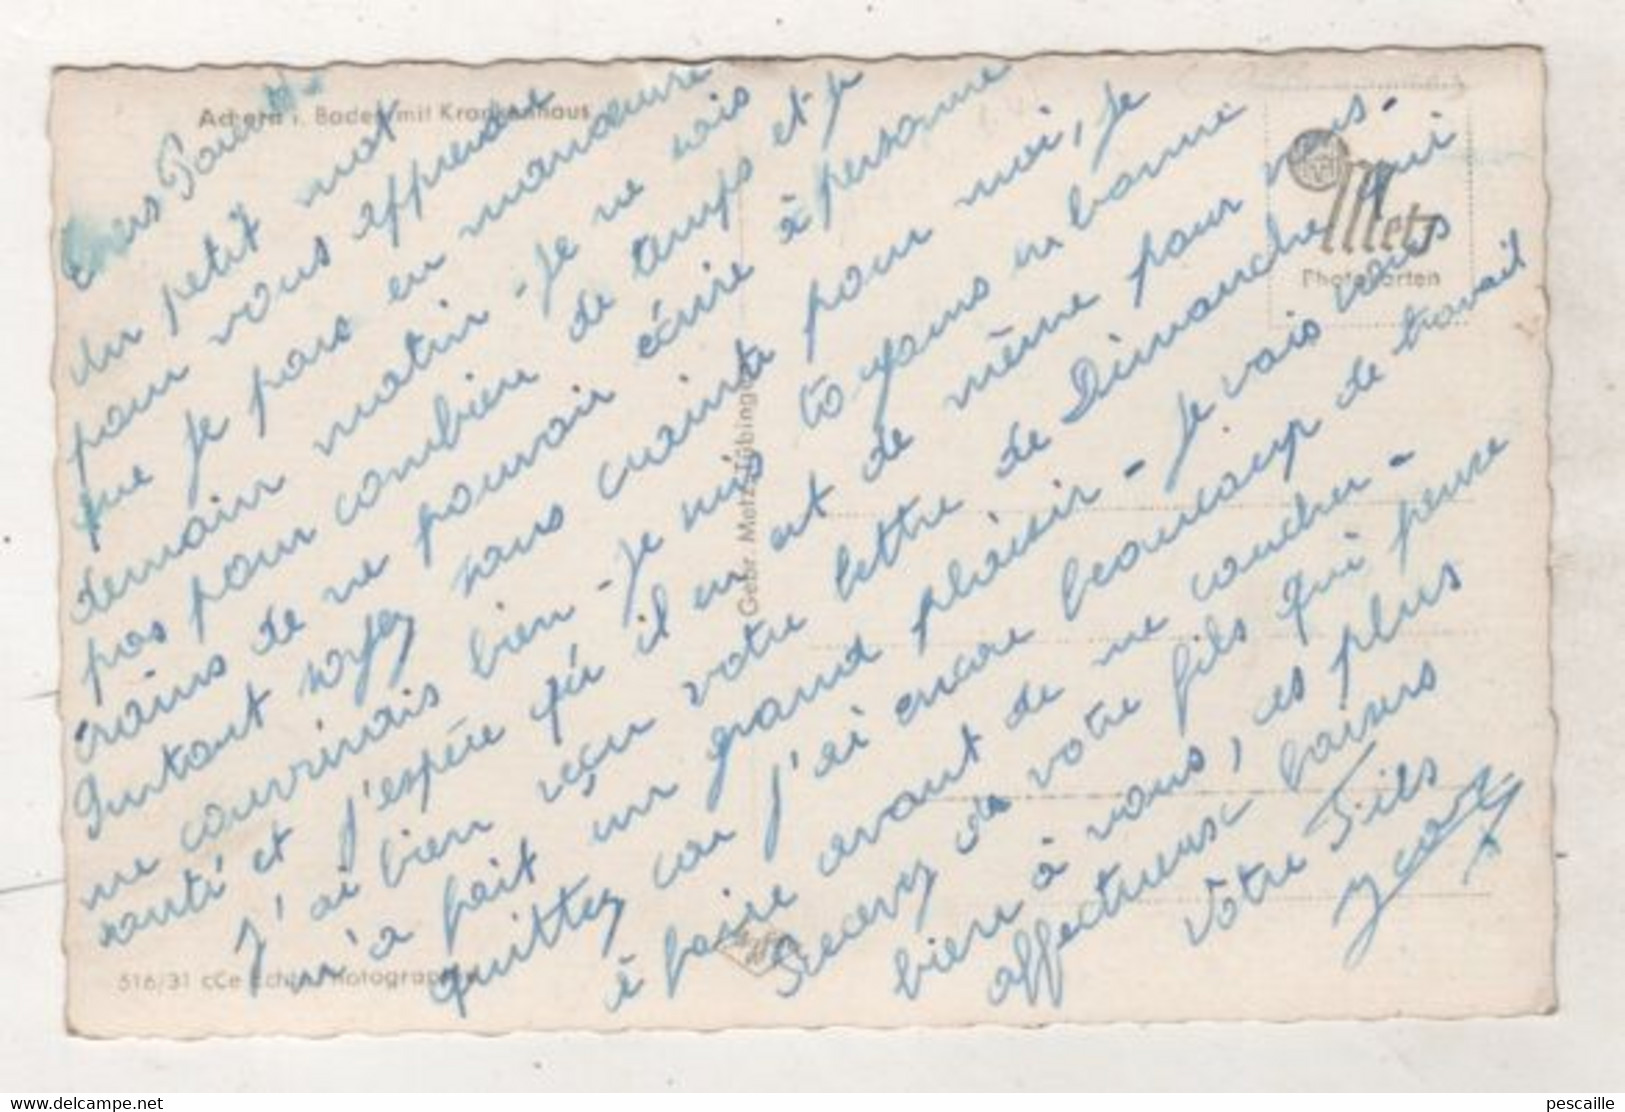 Achern i. Baden mit Krankenhaus
Chers Parents
Un petit mot
pour vous apprendre
que je pars en manœuvre
demain matin - Je ne sais
pas pour combien de temps et je
crains de ne pouvoir écrire à personne
Autant soyez sans crainte pour moi, je
me couvrirais bien - Je suis toujours en bonne
santé et j'espère qu'il en est de même pour vous -
J'ai bien reçu votre lettre de Dimanche qui
m'a fait un grand plaisir - Je vais vous
quittez car j'ai encore beaucoup de travail
à faire avant de me coucher -
Recevez de votre fils qui pense
bien à vous, ses plus
affectueux baisers
Votre Fils
Gebr. Metz, Tübingen
Metz
Photokarten
516/31 cCe Echte Photographie
pescaille
www.delcampe.net